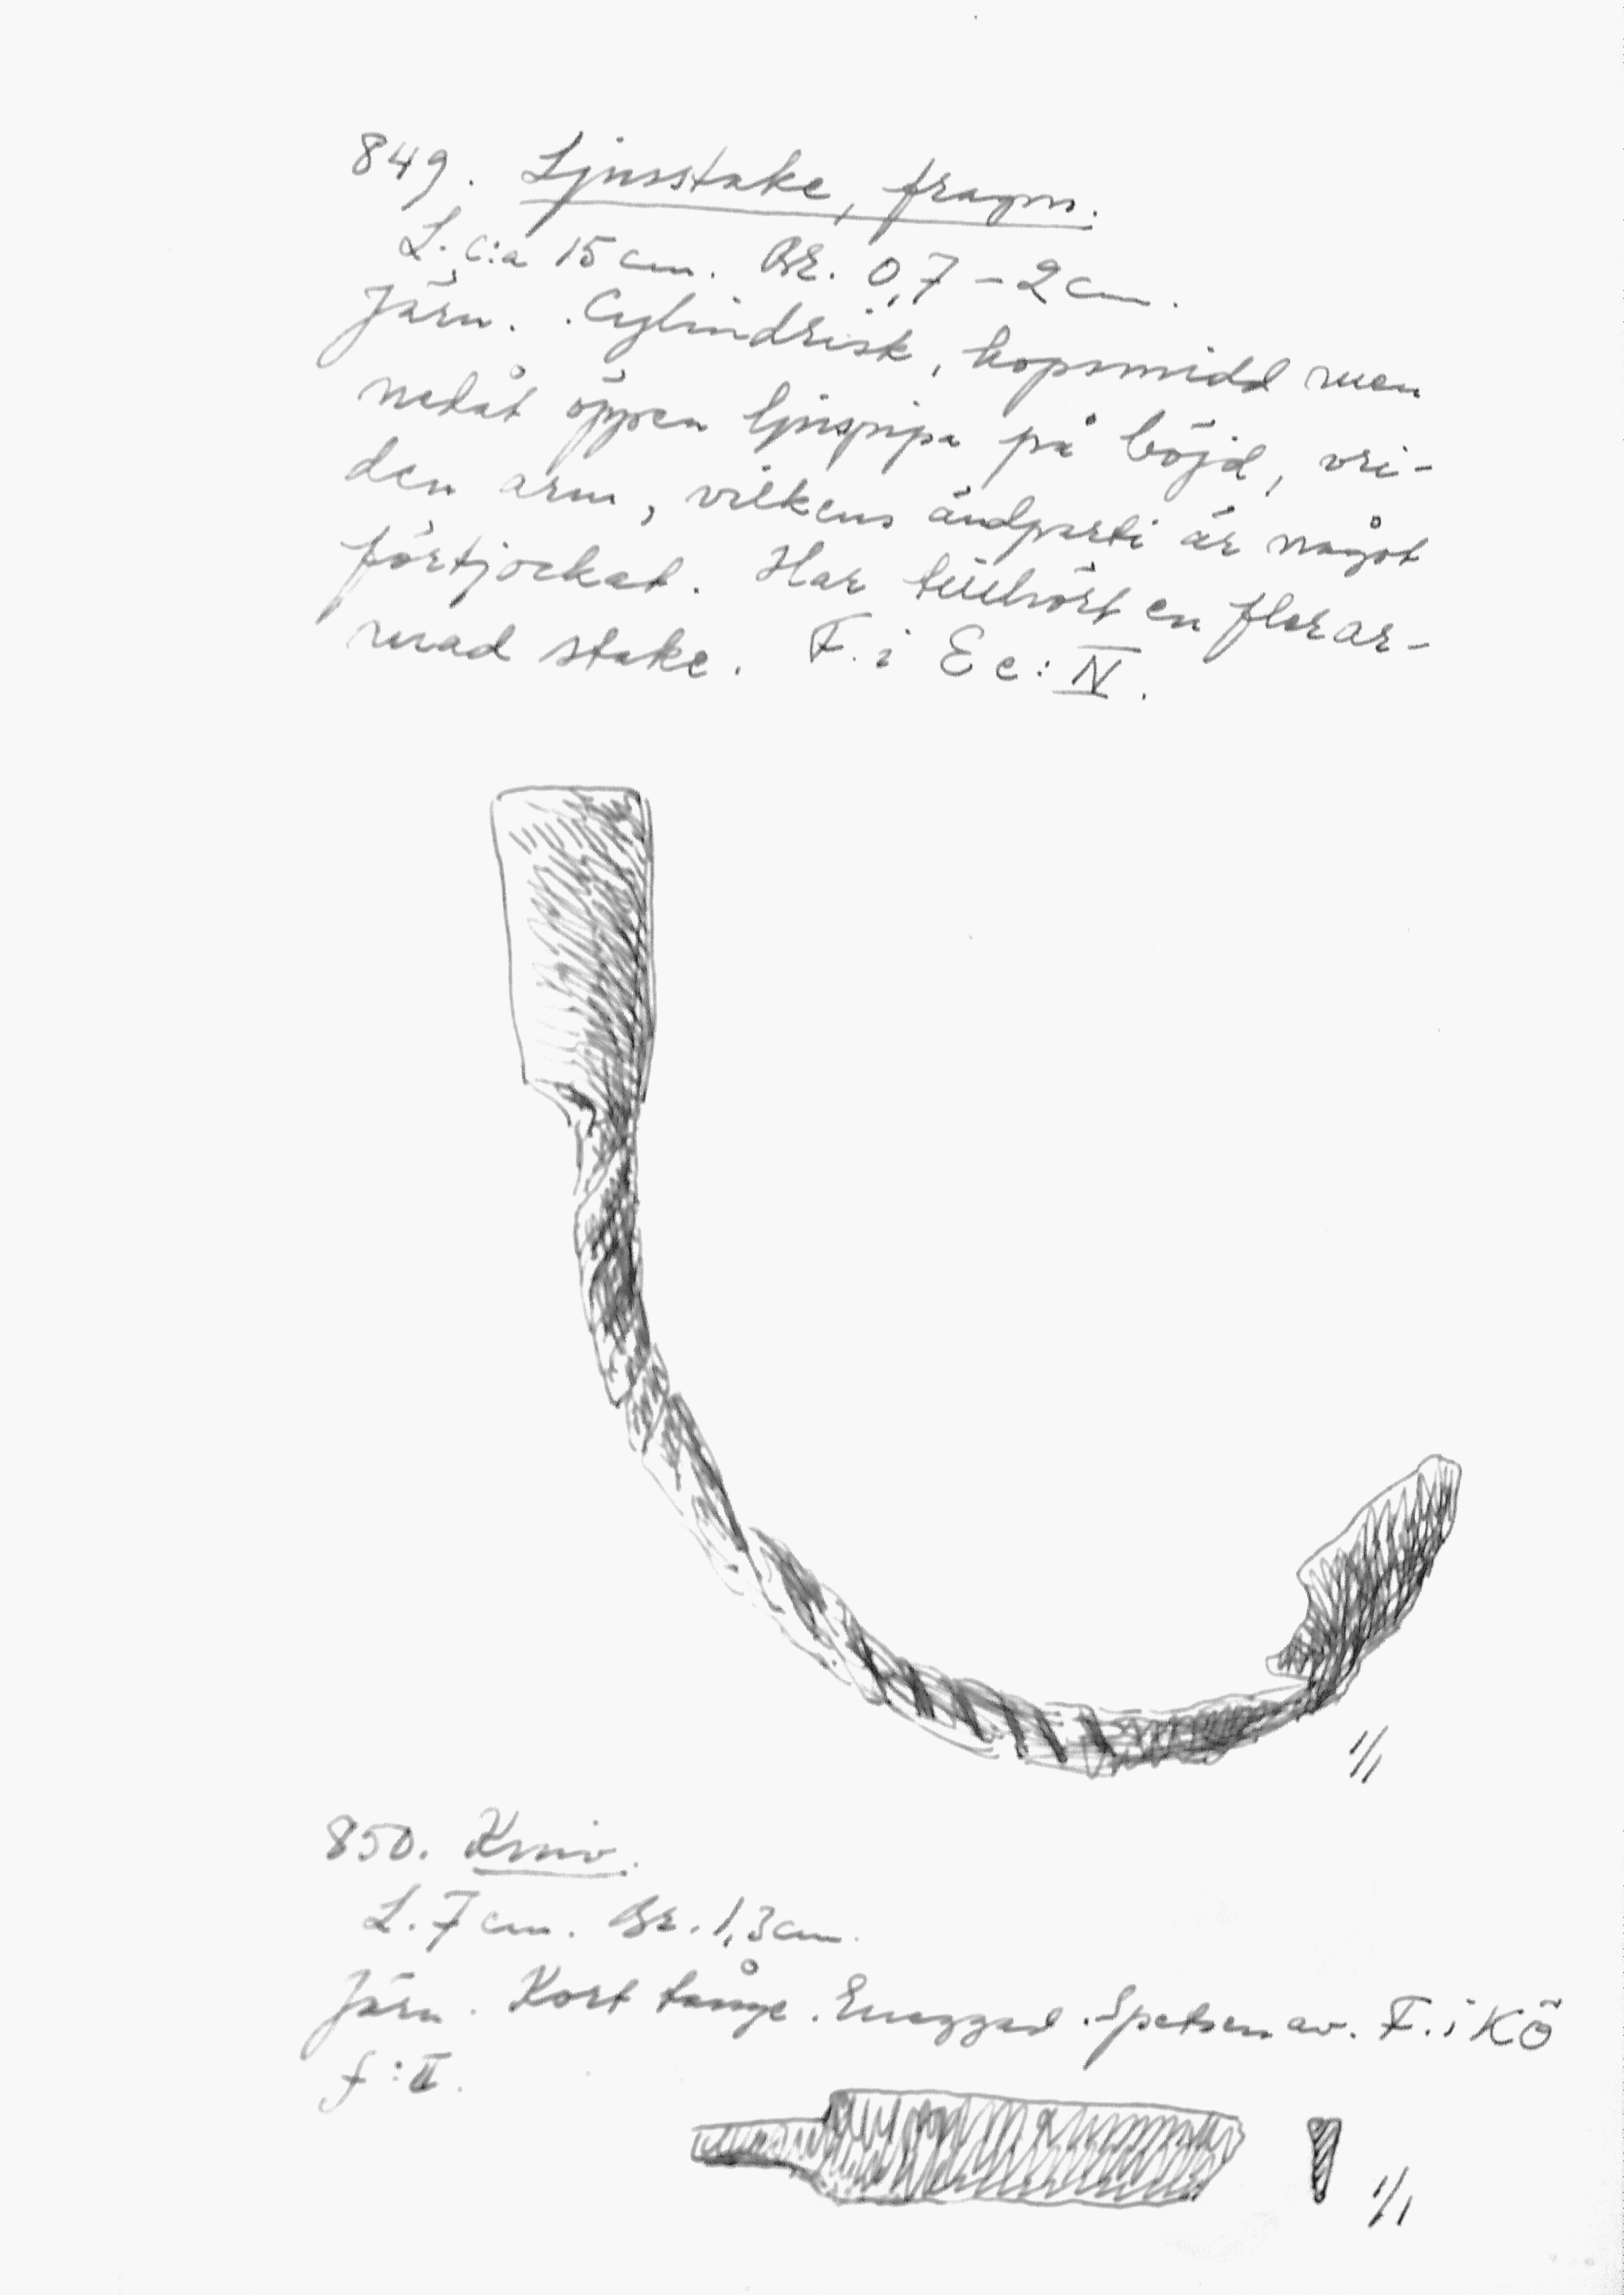 849. Ljusstake, fragm.
L. c:a 15 cm. Br. 0,7 – 2 cm.
Järn. Cylindrisk, hopsmidd men
nedåt öppen ljuspipa på böjd, vri-
den arm, vilkens ändparti är något
förtjockat. Har tillhört en flerar-
mad stake. F. i Ee: IV.
1/1
850. Kniv.
L. 7 cm. Br. 1,3 cm.
Järn. Kort tånge. Eneggad. Spetsen av. F. i KÖ
f: II.
1/1